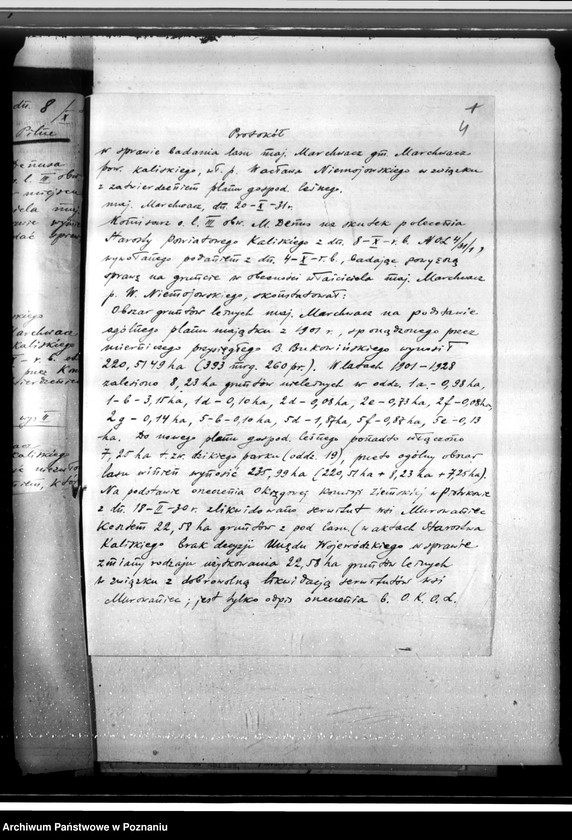 dn. 8/X
Pilne
4
Protokół
w sprawie badania lasu maj. Marchwacz gm. Marchwacz
pow. kaliskiego, wł. p. Wacława Niemojowskiego w związku
z zatwierdzeniem planu gospod. leśnego.
maj. Marchwacz, dn. 20-X-31r.
Komisarz o. l. III obw. M. Denus na skutek polecenia
Starosty Powiatowego Kaliskiego z dn. 8-X-r.b. N OL 4/
wywołanego podaniem z dn. 4-X-r.b., badając powyższą
sprawę na gruncie w obecności właściciela maj. Marchwacz
p. W. Niemojowskiego, skonstatował:
Obszar gruntów leśnych maj. Marchwacz na podstawie
ogólnego planu majątku z 1901 r., sporządzonego przez
mierniczego przysięgłego B. Bukowińskiego wynosił
220,5149 ha (393 mrg. 260 pr.). W latach 1901-1928
zalesiono 8,23 ha gruntów nieleśnych w oddz. 1a-0,98 ha,
1-b-3,15 ha, 1d-0,10 ha, 2d-0,08 ha, 2e-0,73 ha, 2f-0,08 ha,
2g-0,14 ha, 5-b-0,10 ha, 5d-1,87 ha, 5f-0,87 ha, 5e-0,13
ha. Do nowego planu gospod. leśnego ponadto włączono
7,25 ha t.zw. dzikiego parku (oddz. 19), przeto ogólny obszar
lasu winien wynosić 235,99 ha (220,51 ha + 8,23 ha + 7,25 ha).
Na podstawie orzeczenia Okręgowej Komisji Ziemskiej w Piotrkowie
z dn. 18-II-30 r. zlikwidowano serwitut wsi Murowaniec
kosztem 22,58 ha gruntów z pod lasu. (w aktach Starostwa
Kaliskiego brak decyzji Urzędu Wojewódzkiego w sprawie
zmiany rodzaju użytkowania 22,58 ha gruntów leśnych
w związku z dobrowolną likwidacją serwitutów wsi
Murowaniec; jest tylko odpis orzeczenia b. O.K.O.Z.
Archiwum Państwowe w Poznaniu